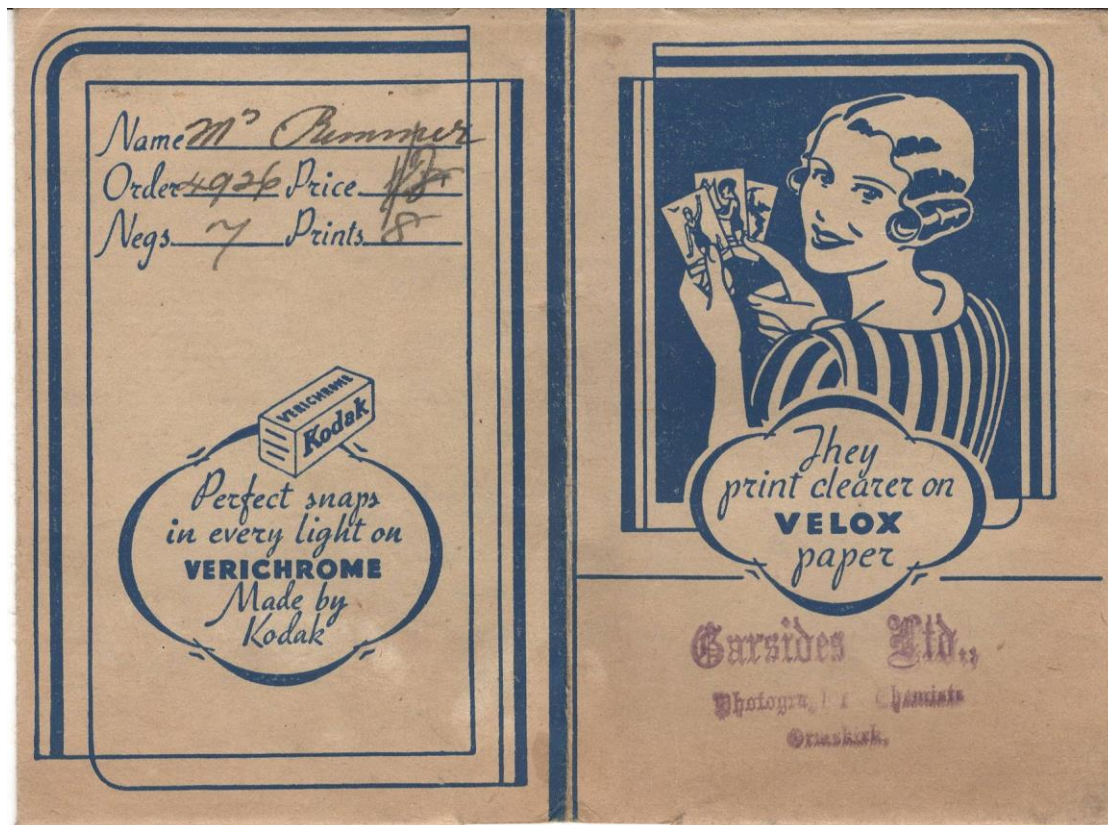 Name Mrs Rimmer
Order 4926 Price 1/2
Negs 7 Prints 8
VERICHROME
Kodak
Perfect snaps
in every light on
VERICHROME
Made by
Kodak
They
print clearer on
VELOX
paper
Garsides Ltd.,
Chemists
Ormskirk.